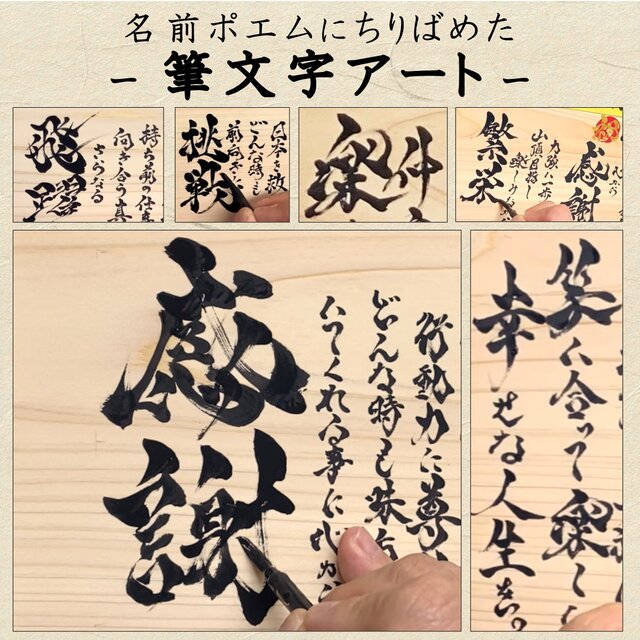 名前ポエムにちりばめた
- 筆文字アート -
持ち前の仕
向き合う真
さらなる
飛躍
どんな時も
前向きに
挑戦
仲
楽
感謝
力強い一歩
山頂目指し
楽しみな
繁栄
行動力に尊
どんな時も味方
いてくれる事に心か
感謝
笑い合って楽し
幸せな人生を。